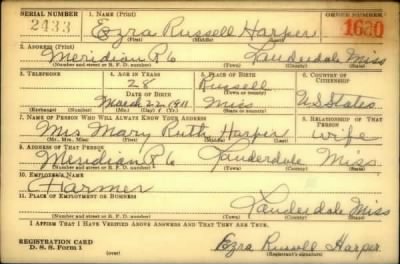 SERIAL NUMBER 1. NAME (Print) ORDER NUMBER
2433 Ezra Russell Harper 1680
(First) (Middle) (Last)
2. ADDRESS (Print)
Meridian R 6 Lauderdale Miss
(Number and street or R. F. D. number) (Town) (County) (State)
3. TELEPHONE 4. AGE IN YEARS 5. PLACE OF BIRTH 6. COUNTRY OF CITIZENSHIP
28 Russell
DATE OF BIRTH (Town or county)
March 22 1911 Miss U S States
(Exchange) (Number) (Mo.) (Day) (Yr.) (State or country)
7. NAME OF PERSON WHO WILL ALWAYS KNOW YOUR ADDRESS 8. RELATIONSHIP OF THAT PERSON
Mrs Mary Ruth Harper Wife
(Mr., Mrs., Miss) (First) (Middle) (Last)
9. ADDRESS OF THAT PERSON
Meridian R 6 Lauderdale Miss
(Number and street or R. F. D. number) (Town) (County) (State)
10. EMPLOYER'S NAME
Farmer
11. PLACE OF EMPLOYMENT OR BUSINESS
Lauderdale Miss
(Number and street or R. F. D. number) (Town) (County) (State)
I AFFIRM THAT I HAVE VERIFIED ABOVE ANSWERS AND THAT THEY ARE TRUE.
REGISTRATION CARD Ezra Russell Harper
D. S. S. Form 1 (over) (Registrant's signature)